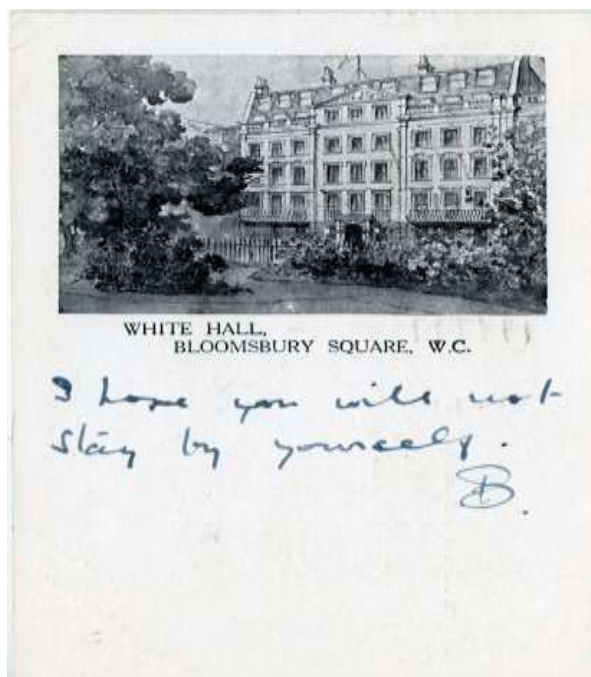 WHITE HALL,
BLOOMSBURY SQUARE, W.C.
I hope you will not
stay by yourself.
B.